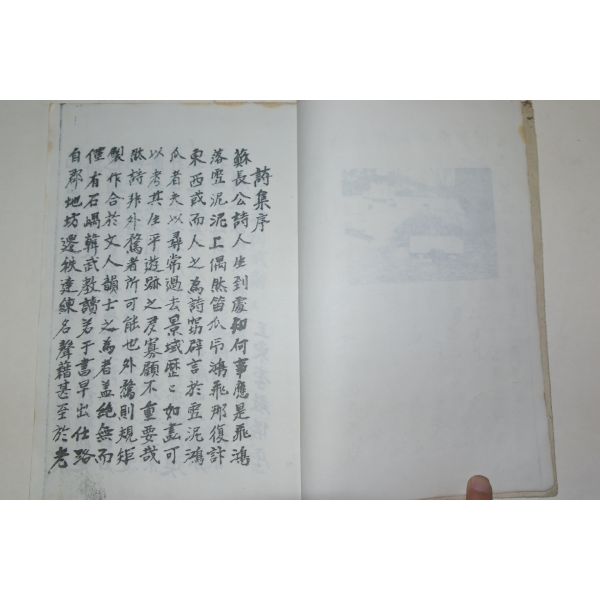 詩集序
蘇長公詩人生到處知何事應是飛鴻
落雪泥泥上偶然留爪而鴻飛那復計
東西哉而人之為詩辟言於雪泥鴻
爪者夫以尋常過去景域歷〻如畫可
以考其生平遊跡之多寡顧不重要哉
然詩非外騖者所可能也外騖則規矩
製作合於文人韻士之為者盖絶無而
僅有石嵎韓武教讀若于書早出仕路
自郡地坊遷秩達練名聲藉甚至於老